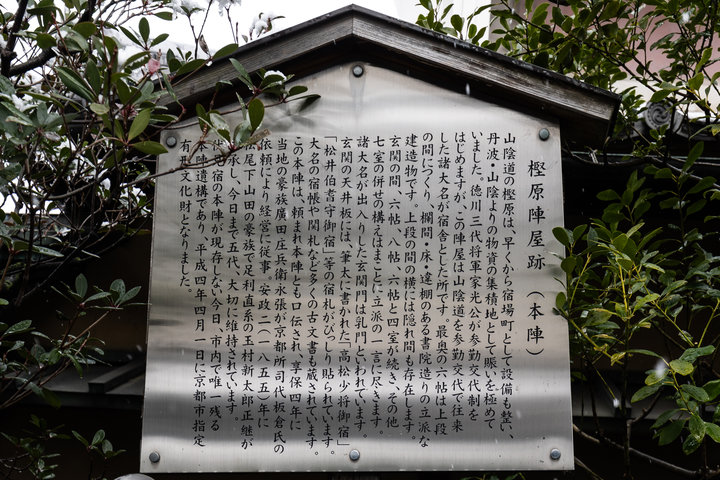 樫原陣屋跡（本陣）
山陰道の樫原は、早くから宿場町として設備も整い、
丹波・山陰よりの物資の集積地として賑いを極めて
いました。徳川三代将軍家光公が参勤交代制を
はじめますが、この陣屋は山陰道を参勤交代で往来
した諸大名が宿舎とした所です。最奥の六帖は上段
の間につくり、欄間・床・違棚のある書院造りの立派な
建造物です。上段の間の横には隠れ間も存在します。
玄関の間、六帖、八帖、六帖と四室が続き、その他
七室の併せの構えはまことに立派の一言に尽きます。
諸大名が出入りした玄関門は乳門といわれています。
玄関の天井板には、筆太に書かれた「高松少将御宿」
「松井伯耆守御宿」等の宿札がびっしり貼られています。
大名の宿帳や関札など多くの古文書も蔵されています。
この本陣は、頼まれ本陣とも口伝され、享保四年に
当地の豪族廣田庄兵衛永張が京都所司代板倉氏の
依頼により経営に従事、安政二（一八五五）年に
松尾下山田の豪族で足利直系の玉村新太郎正継が
承し、今日まで五代、大切に維持されています。
伏見宿の本陣が現存しない今日、市内で唯一残る
本陣遺構であり、平成四年四月一日に京都市指定
有形文化財となりました。